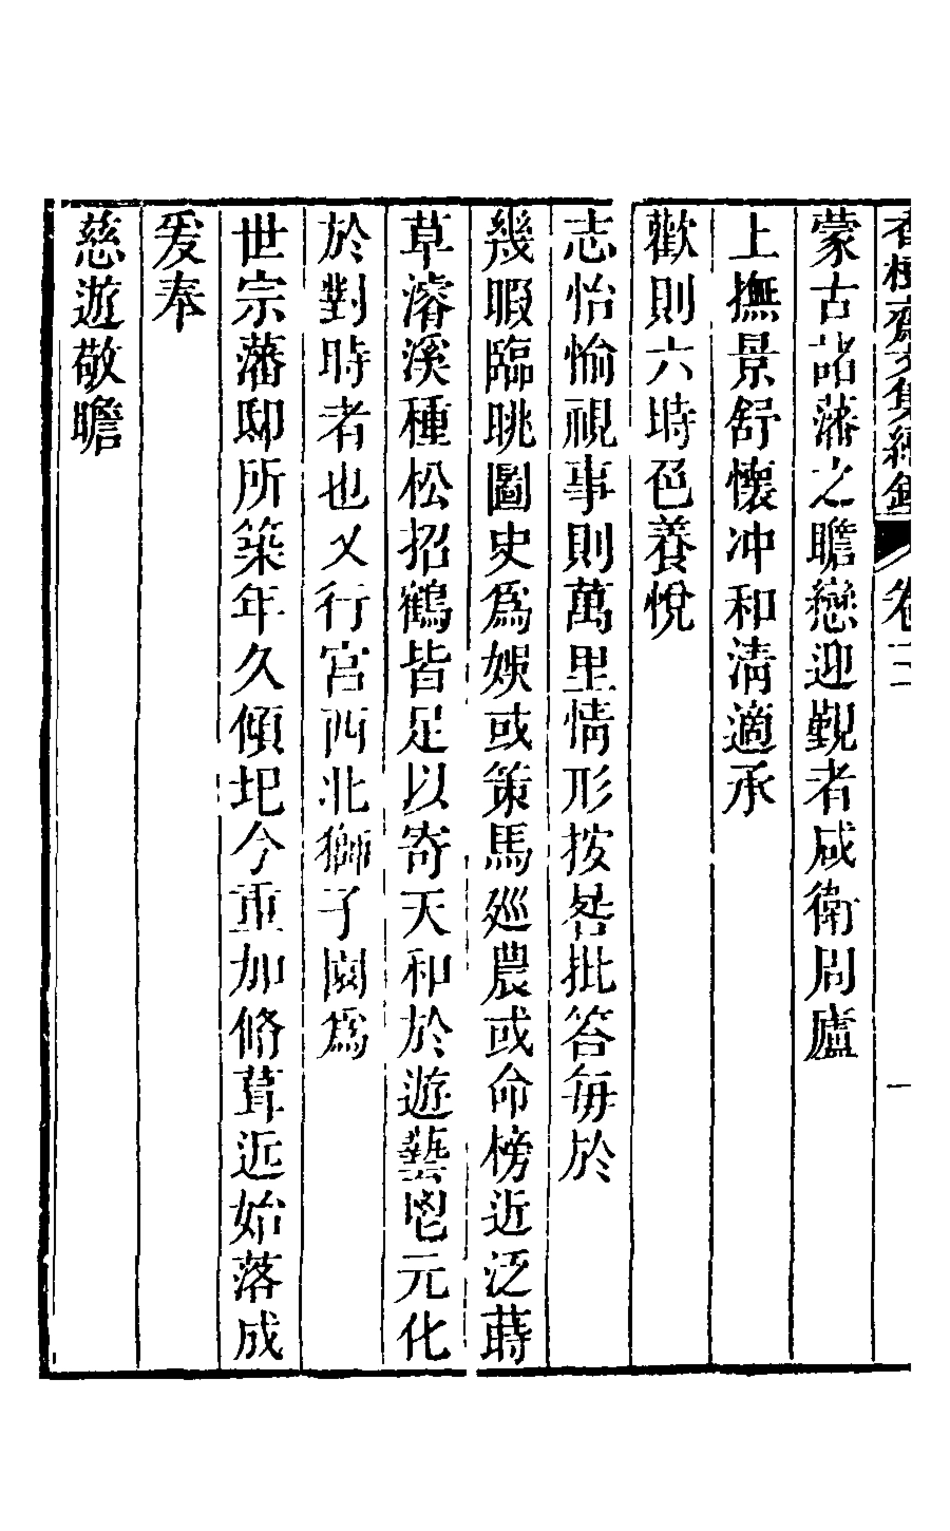 香樹齋文集續鈔 卷二 一
蒙古諸藩之瞻戀迎覲者咸衛周廬
上撫景舒懷冲和清適承
歡則六時色養悅
志怡愉視事則萬里情形按晷批答每於
幾暇臨眺圖史爲娛或策馬廵農或命榜近泛蒔
草濬溪種松招鶴皆足以寄天和於遊藝鬯元化
於對時者也又行宮西北獅子園爲
世宗藩邸所築年久傾圮今重加脩葺近始落成
爰奉
慈遊敬瞻